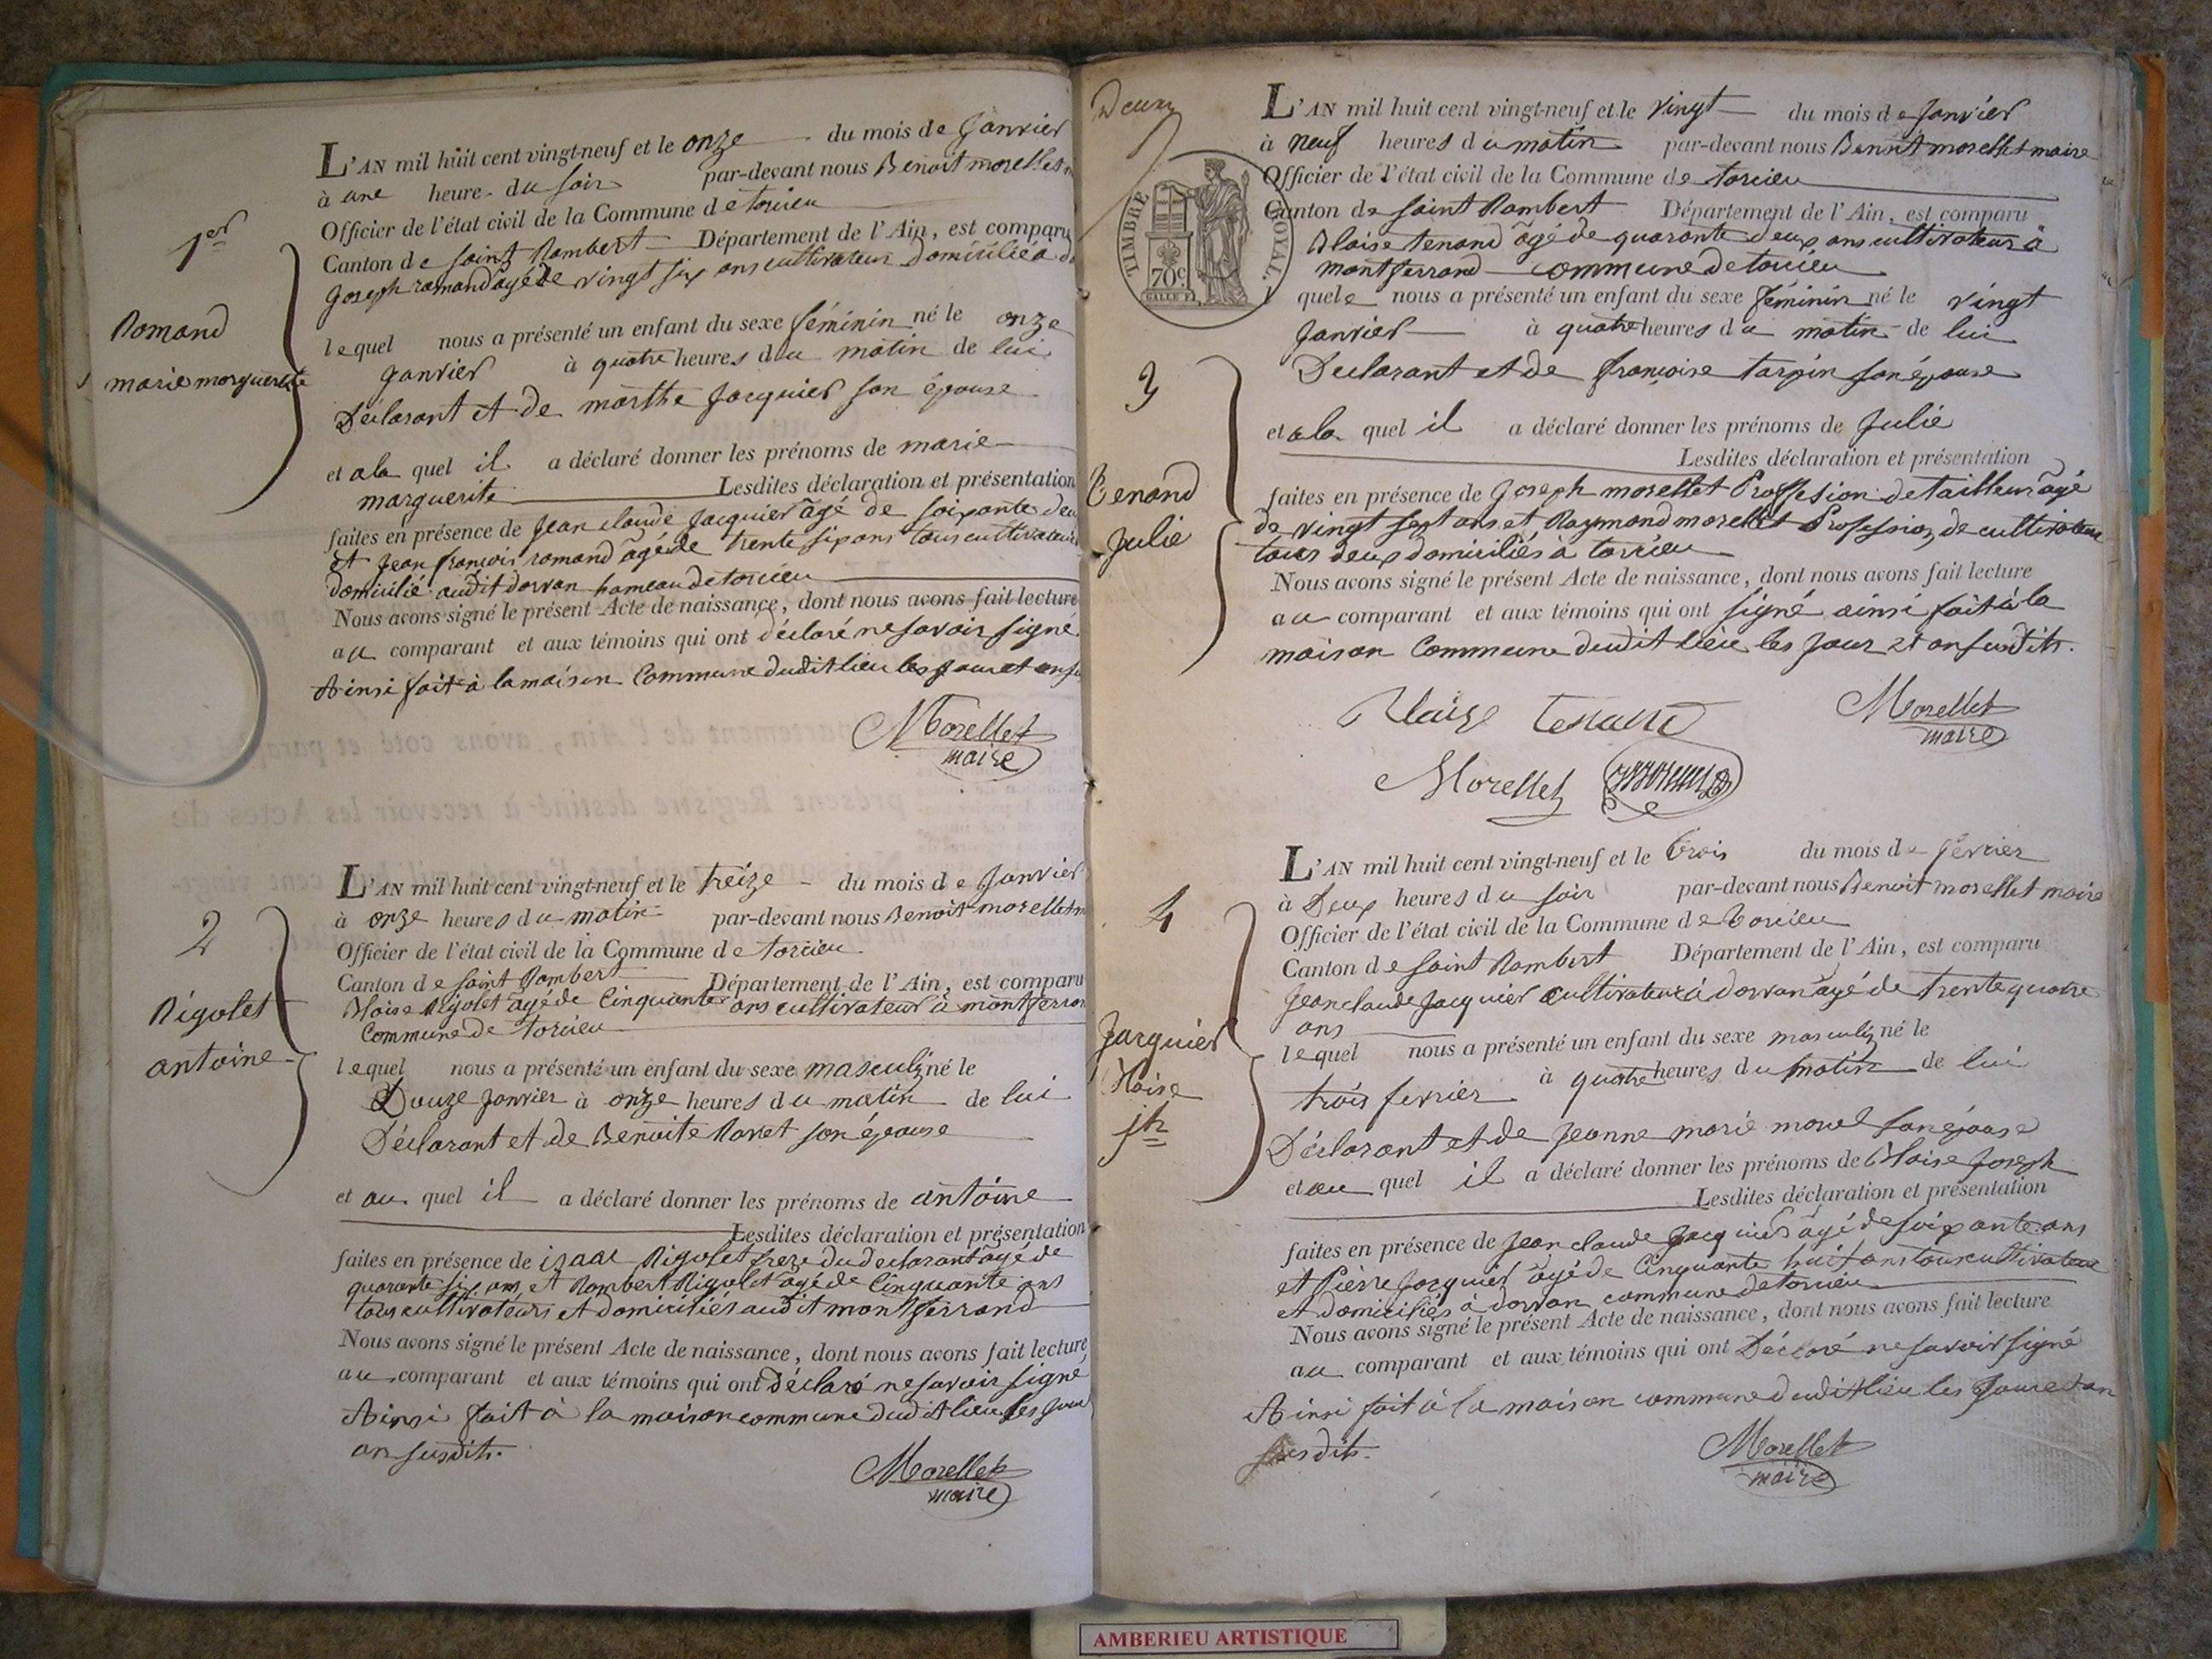 1er
Romand
marie marguerite
L'AN mil huit cent vingt-neuf et le onze du mois de Janvier
à une heure du soir par-devant nous Benoit morellet
Officier de l'état civil de la Commune de torcieu
Canton de Saint Rambert Département de l'Ain, est comparu
Joseph romand âgé de vingt six ans cultivateur domicilié à
lequel nous a présenté un enfant du sexe féminin né le onze
Janvier à quatre heures du matin de lui
Déclarant et de marthe Jacquier son épouse
et a la quel il a déclaré donner les prénoms de marie
marguerite Lesdites déclaration et présentation
faites en présence de Jean claude Jacquier âgé de soixante
et Jean françois romand âgé de trente six ans tous cultivateurs
domicilié audit dorvan hameau de torcieu
Nous avons signé le présent Acte de naissance, dont nous avons fait lecture
au comparant et aux témoins qui ont déclaré ne savoir signé
Ainsi fait à la maison Commune dudit lieu les jour et an
Morellet
maire
2
Rigolet
antoine
L'AN mil huit cent vingt-neuf et le treize du mois de Janvier
à onze heures du matin par-devant nous Benoit morellet
Officier de l'état civil de la Commune de torcieu
Canton de Saint Rambert Département de l'Ain, est comparu
Blaise Rigolet âgé de Cinquante ans cultivateur à montferran
Commune de torcieu
lequel nous a présenté un enfant du sexe masculin né le
Douze Janvier à onze heures du matin de lui
Déclarant et de Benoite Ravet son épouse
et au quel il a déclaré donner les prénoms de antoine
Lesdites déclaration et présentation
faites en présence de isaac Rigolet frere du declarant âgé de
quarante six ans et Rambert Rigolet âgé de Cinquante ans
tous cultivateurs et domiciliés audit montferrand
Nous avons signé le présent Acte de naissance, dont nous avons fait lecture,
au comparant et aux témoins qui ont déclaré ne savoir signé
Ainsi fait à la maison commune dudit lieu les jour
an susdits.
Morellet
maire
Deux
TIMBRE ROYAL.
70c.
GALLE F.
3
Tenand
Julie
L'AN mil huit cent vingt-neuf et le vingt du mois de Janvier
à neuf heures du matin par-devant nous Benoit morellet maire
Officier de l'état civil de la Commune de torcieu
Canton de Saint Rambert Département de l'Ain, est comparu
Blaise tenand âgé de quarante deux ans cultivateur à
montferrand commune de torcieu
quele nous a présenté un enfant du sexe féminin né le vingt
Janvier à quatre heures du matin de lui
Declarant et de françoise tarpin son épouse
et a la quel il a déclaré donner les prénoms de Julie
Lesdites déclaration et présentation
faites en présence de Joseph morellet Proffesion de tailleur âgé
de vingt sept ans et Raymond morellet Profession de cultivateur
tous deux domiciliés à torcieu
Nous avons signé le présent Acte de naissance, dont nous avons fait lecture
au comparant et aux témoins qui ont signé ainsi fait à la
maison Commune dudit lieu les jour et an susdits.
Blaise tenand
Morellet
maire
Morellet
4
Jacquier
Blaise
jh
L'AN mil huit cent vingt-neuf et le trois du mois de fevrier
à Deux heures du soir par-devant nous Benoit morellet maire
Officier de l'état civil de la Commune de torcieu
Canton de Saint Rambert Département de l'Ain, est comparu
Jean claude Jacquier cultivateur à dorvan âgé de trente quatre
ans
lequel nous a présenté un enfant du sexe masculin né le
trois fevrier à quatre heures du matin de lui
Déclarant et de Jeanne marie morel son épouse
et au quel il a déclaré donner les prénoms de Blaise Joseph
Lesdites déclaration et présentation
faites en présence de Jean claude Jacquier âgé de soixante ans
et Pierre Jacquier âgé de Cinquante huit ans tous cultivateur
et domiciliés à dorvan commune de torcieu
Nous avons signé le présent Acte de naissance, dont nous avons fait lecture
au comparant et aux témoins qui ont Déclaré ne savoir signé
Ainsi fait à la maison commune dudit lieu les jour et an
susdits.
Morellet
maire
AMBERIEU ARTISTIQUE